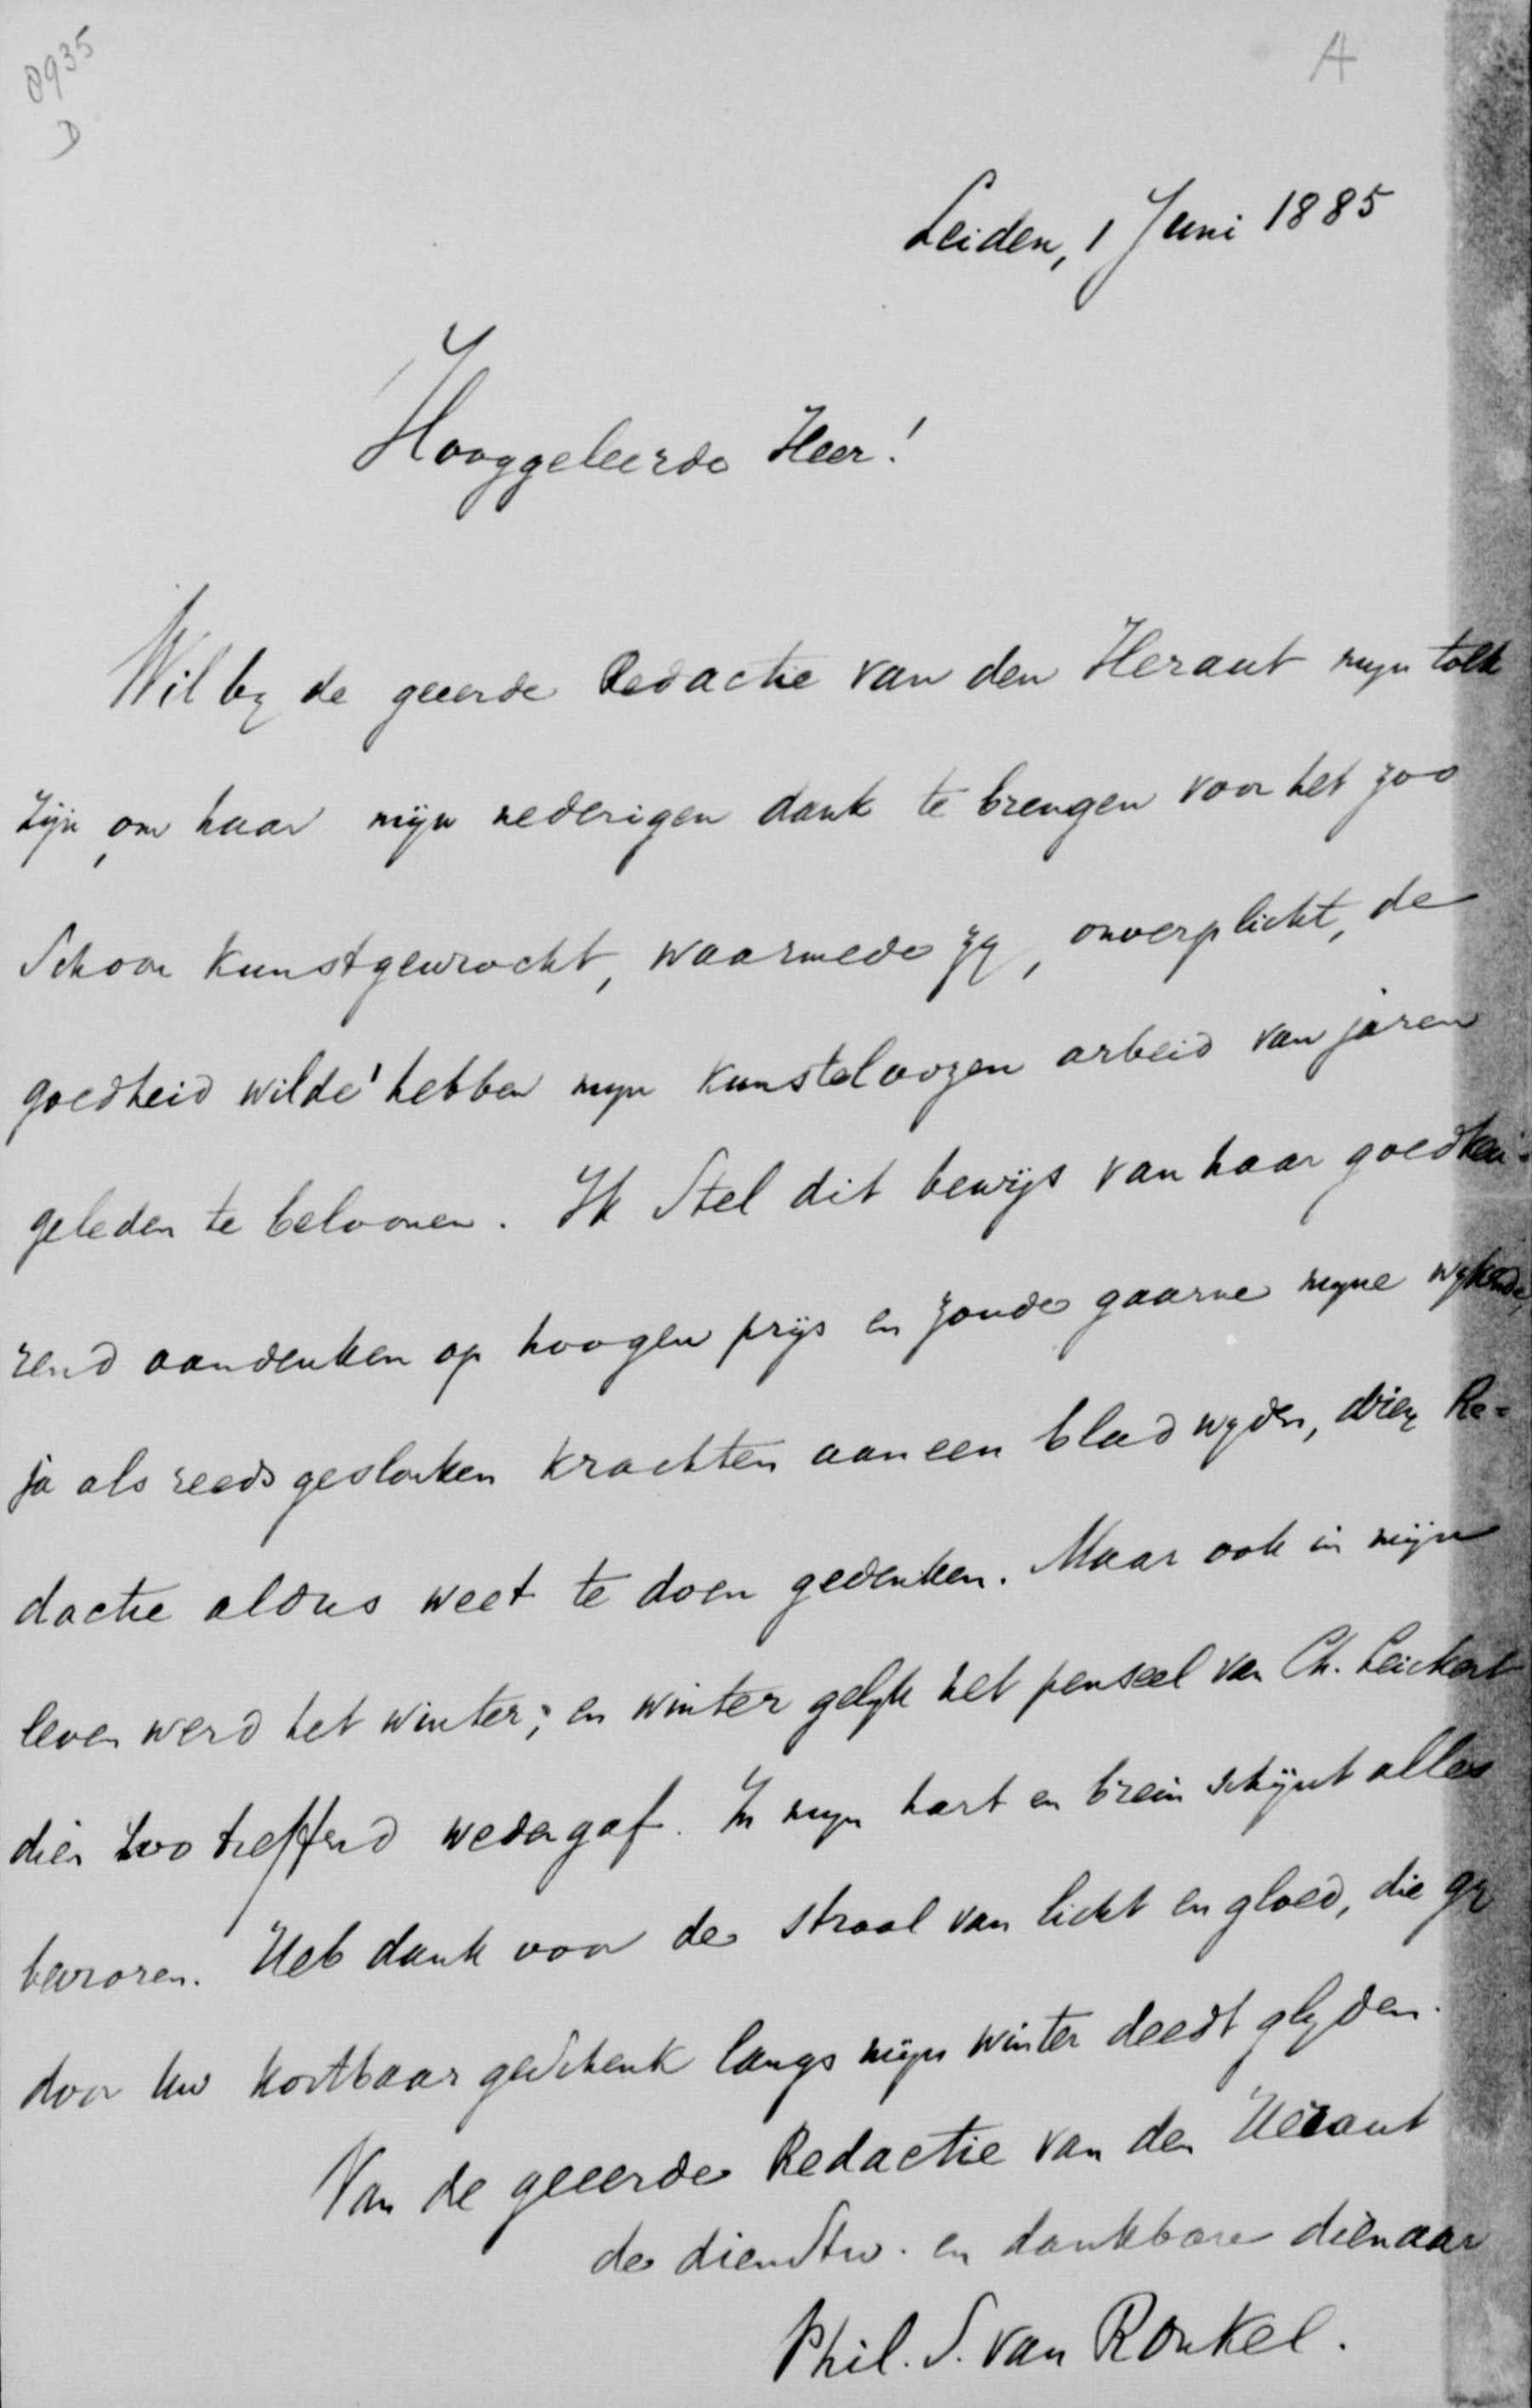 0935
D
A
Leiden, 1 Juni 1885
Hooggeleerde Heer!
Wil by de geeerde Redactie van den Heraut myn tolk
zijn, om haar mijn nederigen dank te brengen voor het zoo
schoon kunstgewrocht, waarmede zy, onverplicht, de
goedheid wilde hebben myn kunsteloozen arbeid van jaren
geleden te beloonen. Ik stel dit bewijs van haar
rend aandenken op hoogen prijs en zoude gaarne myne
ja als reeds geslonken krachten aan een blad wyden, Re-
dactie aldus weet te doen gedenken. Maar ook in mijn
leven werd het winter; en winter gelyk het penseel van Ch. Leickert
dien zoo treffend wedergaf. In myn hart en brein schijnt alles
bevroren. Heb dank voor de straal van licht en gloed, die gy
door uw kostbaar geschenk langs mijn winter deedt glyden.
Van de geeerde Redactie van den Heraut
de dienstw. en dankbare dienaar
Phil. S. van Ronkel.